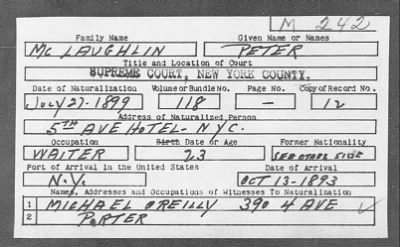 M 242
Family Name Given Name or Names
MCLAUGHLIN PETER
Title and Location of Court
SUPREME COURT, NEW YORK COUNTY.
Date of Naturalization Volume or Bundle No. Page No. Copy of Record No.
July 27-1899 118 — 12
Address of Naturalized Person
5TH AVE HOTEL- NYC.
Occupation Birth Date or Age Former Nationality
WAITER 23 SEE OTHER SIDE
Port of Arrival in the United States Date of Arrival
N.Y. OCT 13-1893
Names, Addresses and Occupations of Witnesses To Naturalization
1 MICHAEL OREILLY 390 4 AVE
2 PORTER